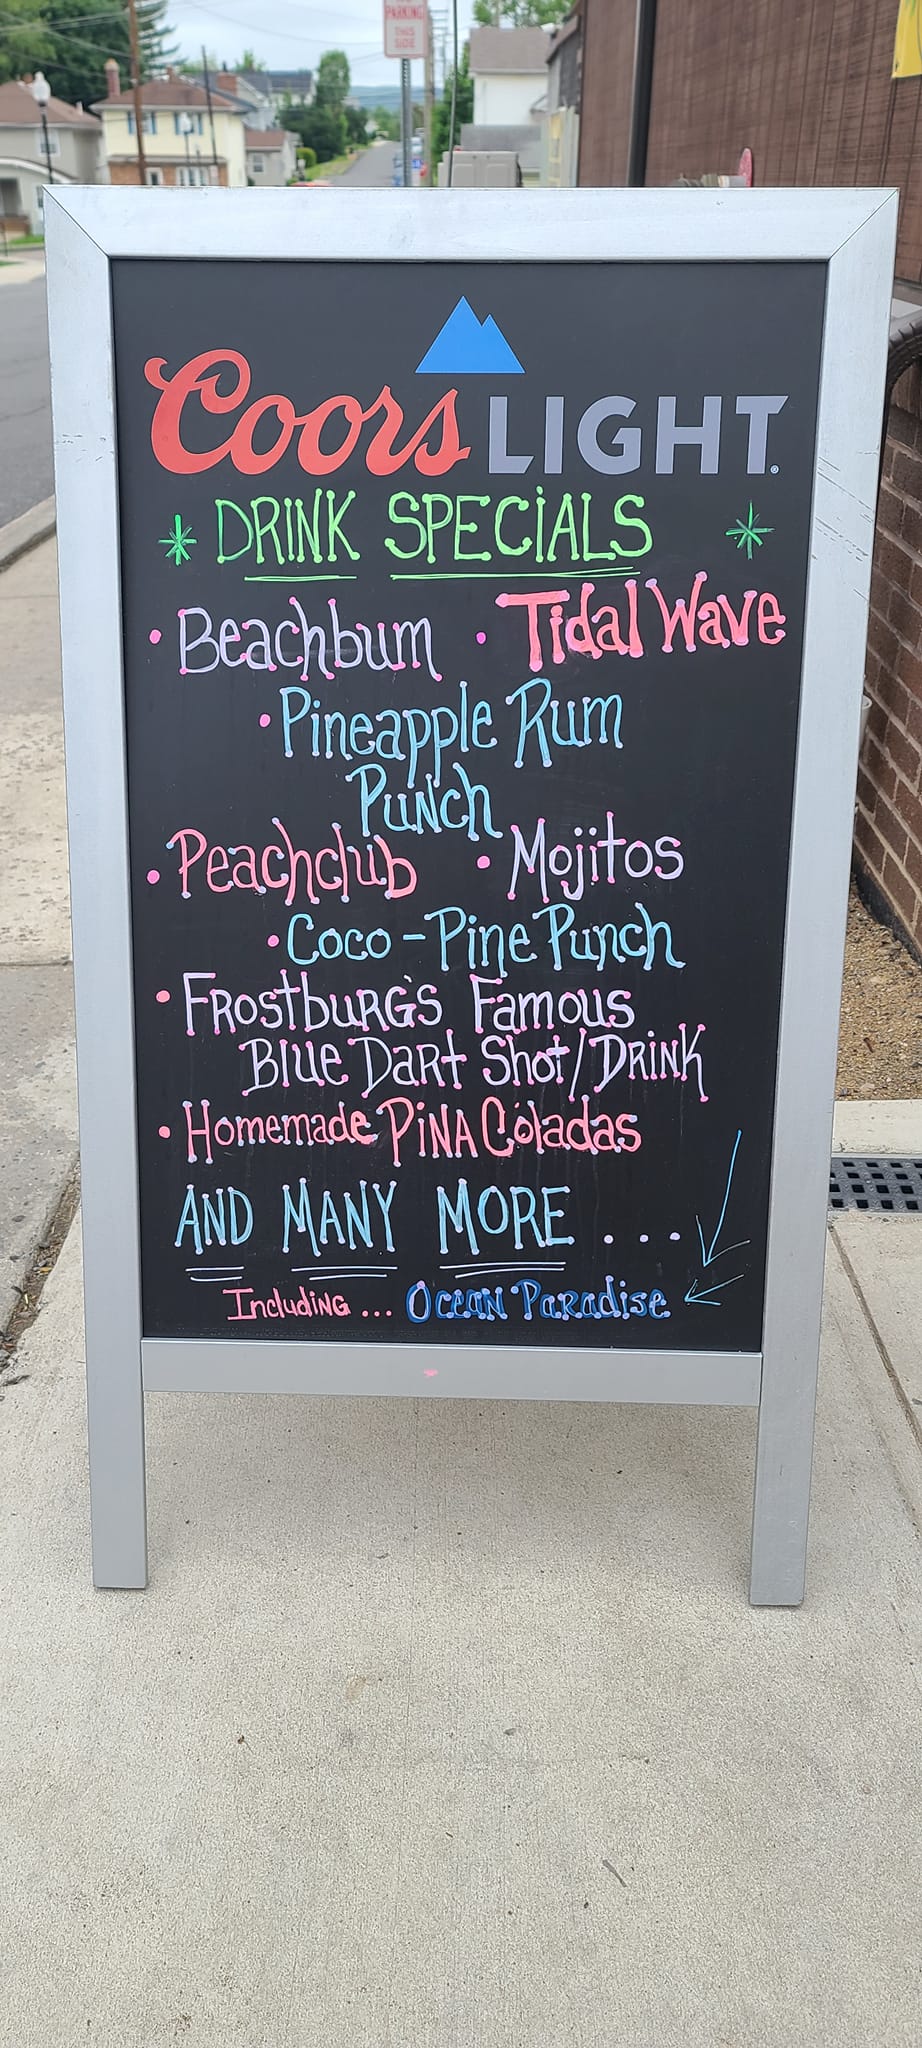 PARKING
THIS
SIDE
Coors LIGHT
* DRINK SPECIALS *
• Beachbum • Tidal Wave
• Pineapple Rum
Punch
• Peachclub • Mojitos
• Coco-Pine Punch
• Frostburg's Famous
Blue Dart Shot/Drink
• Homemade PiNA Coladas
AND MANY MORE ...
Including ... Ocean Paradise